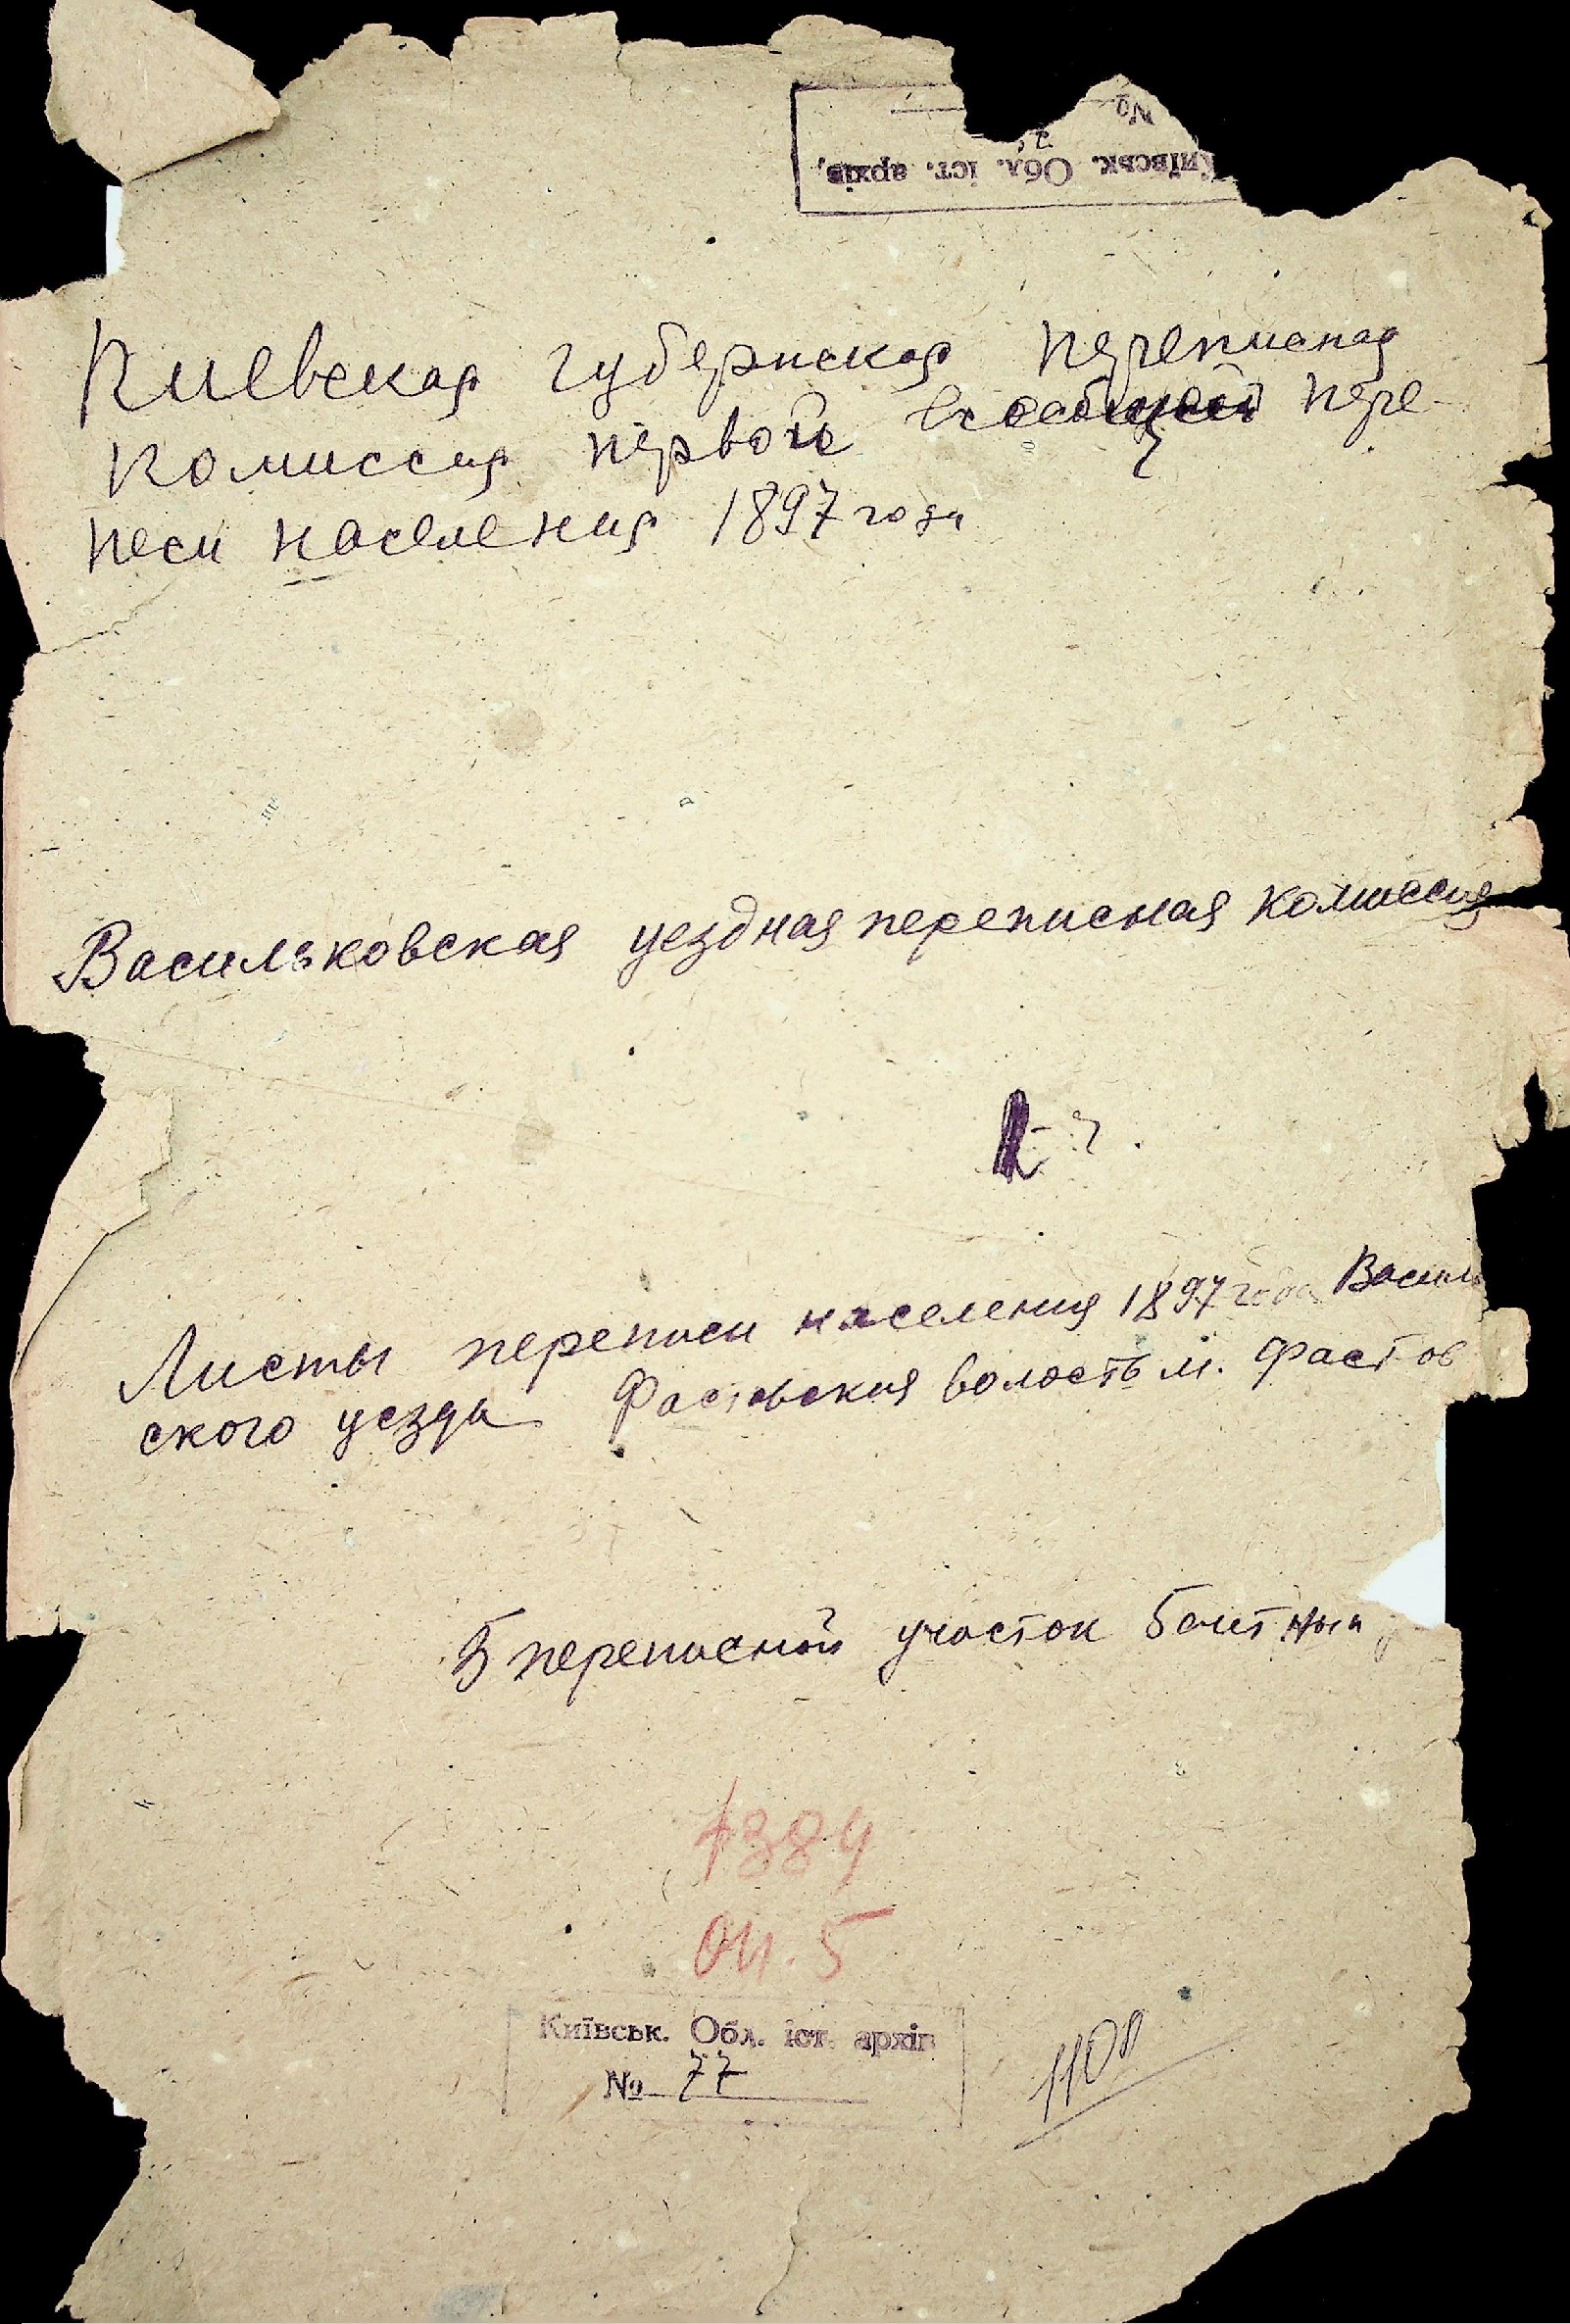 №
Київськ. Обл. іст. архів,
Киевская губернская переписная
комиссия первой всеобщей пере-
писи населения 1897 года
Васильковская уездная переписная комиссия
Листы переписи населения 1897 года Василь
ского уезда Фастовская волость м. Фастов
5 переписной участок
1384
оп. 5
Київськ. Обл. іст. архів
№ 77